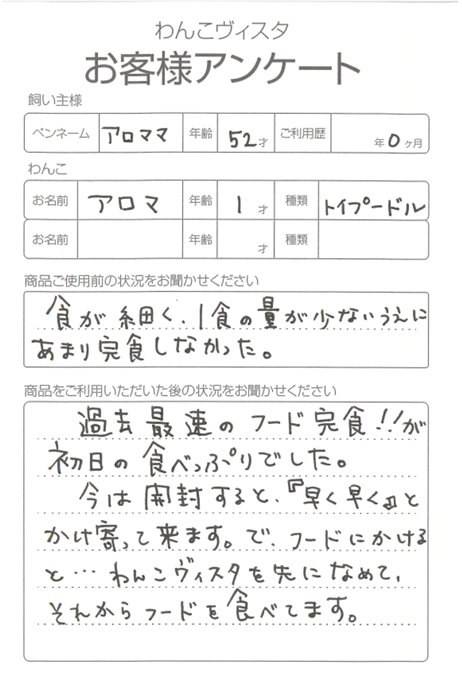 わんこヴィスタ
お客様アンケート
飼い主様
ペンネーム アロママ 年齢 52才 ご利用歴 年0ヶ月
わんこ
お名前 アロマ 年齢 1才 種類 トイプードル
お名前 年齢 才 種類
商品ご使用前の状況をお聞かせください
食が細く、1食の量が少ないうえに
あまり完食しなかった。
商品をご利用いただいた後の状況をお聞かせください
過去最速のフード完食!!が
初日の食べっぷりでした。
今は開封すると、『早く早く』と
かけ寄って来ます。で、フードにかける
と…わんこヴィスタを先になめて、
それからフードを食べてます。